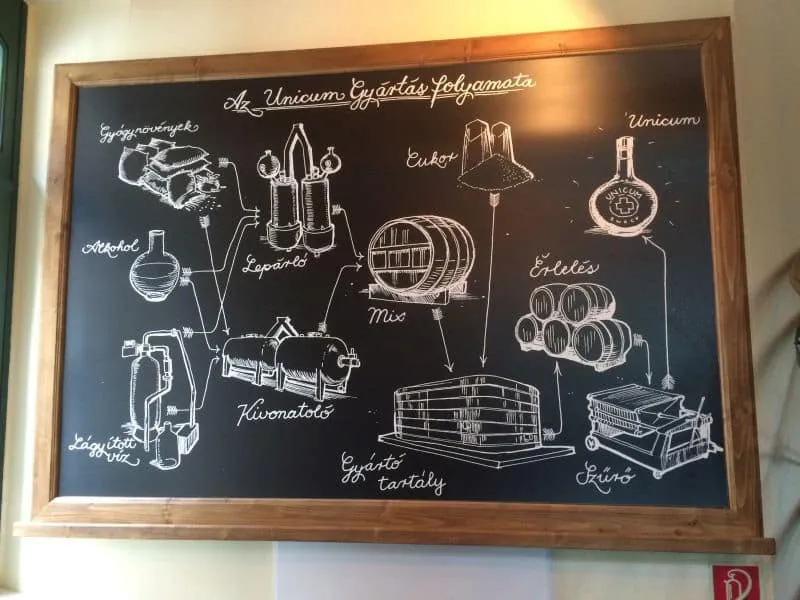 Az Unicum Gyártás folyamata
Gyógynövények
Alkohol
Lágyított
víz
Lepárló
Kivonatoló
Cukor
Mix
Gyártó
tartály
Érlelés
Szűrő
Unicum
UNICUM
ZWACK